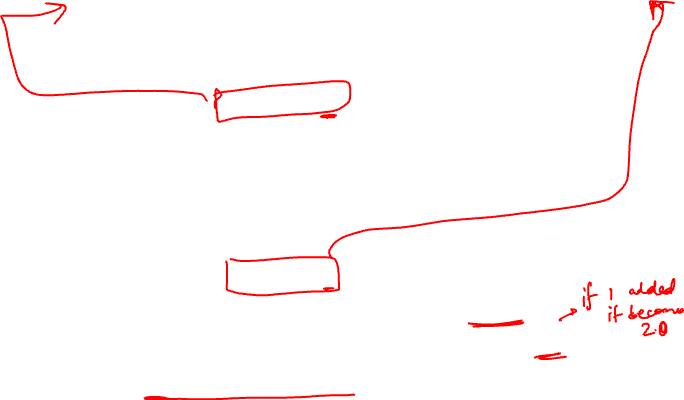 if 1 added
if become
2.0